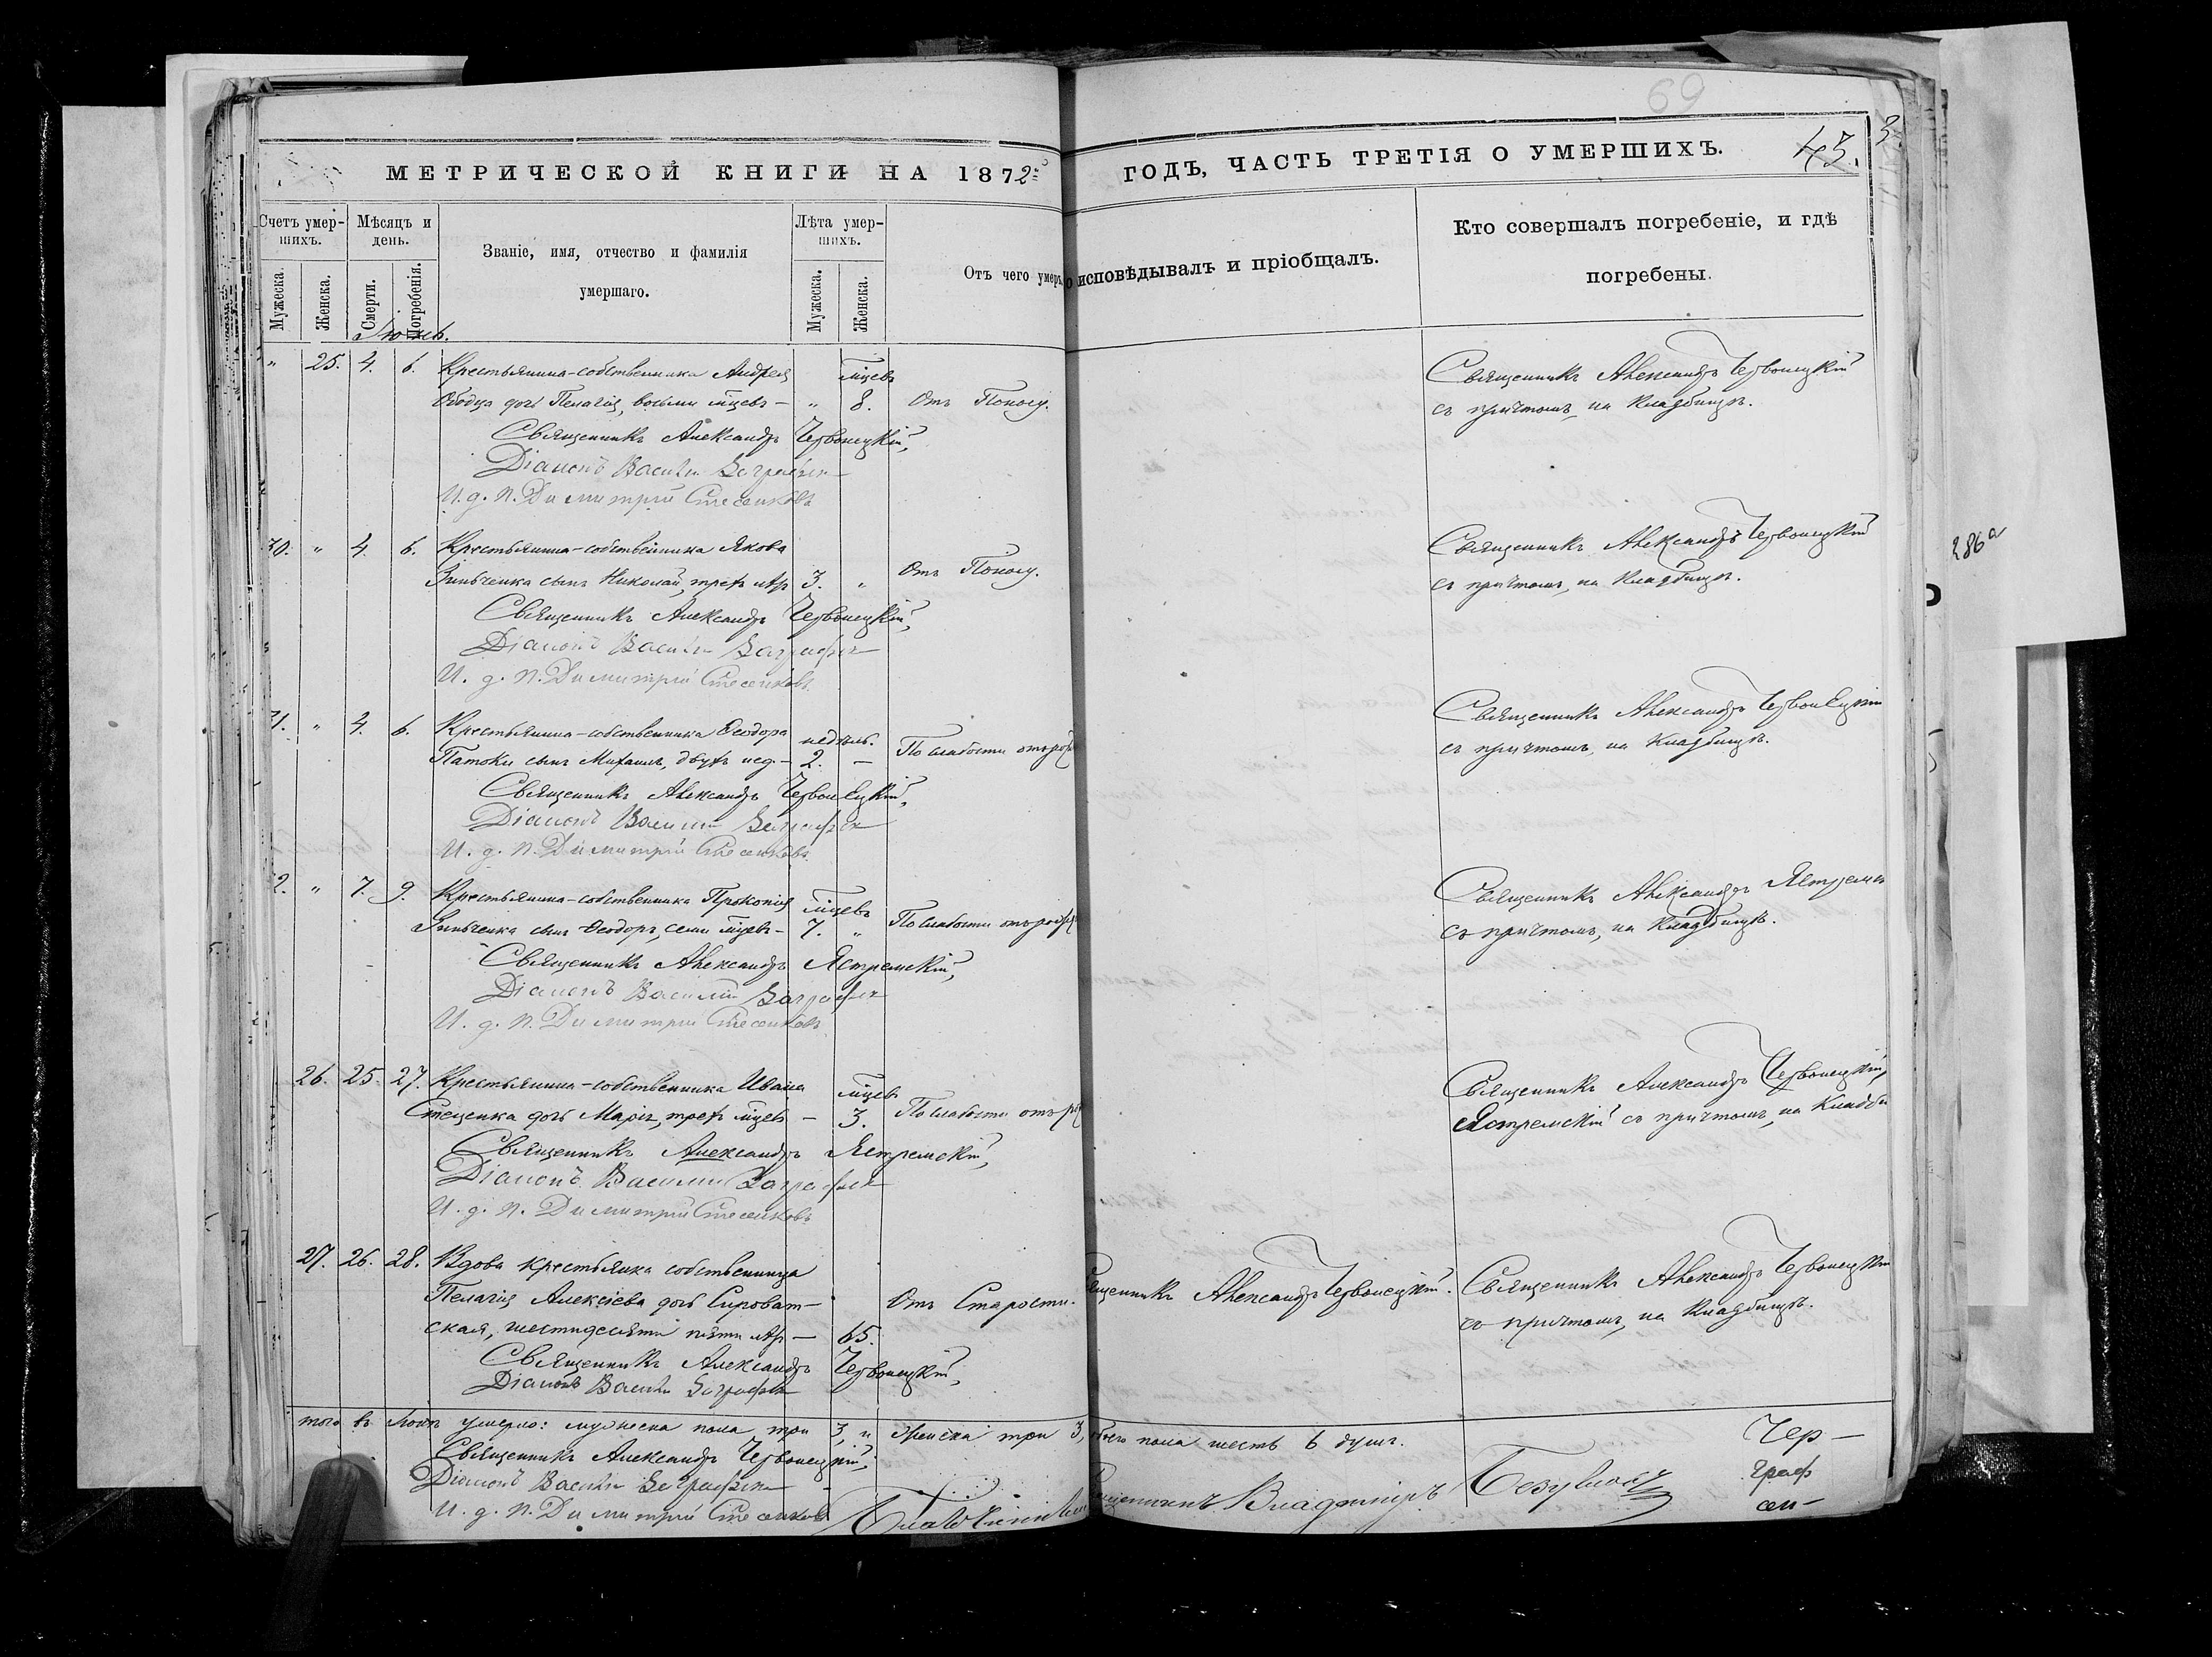 69
МЕТРИЧЕСКОЙ КНИГИ НА 1872
ГОДЪ, ЧАСТЬ ТРЕТІЯ О УМЕРШИХЪ.
45.
Счетъ умершихъ.
Мѣсяцъ и день.
Званіе, имя, отчество и фамилія умершаго.
Лѣта умершихъ.
Отъ чего умеръ.
исповѣдывалъ и пріобщалъ.
Кто совершалъ погребеніе, и гдѣ погребены.
Мужеска. Женска. Смерти. Погребенія. Мужеска. Женска.
" 25. 4. 6. Крестьянина-собственника Андрея мцевъ
дочь Пелагія, восьми мцевъ – " 8. Отъ Поносу.
Священникъ Александръ Червонецкій
съ причтомъ, на Кладбищѣ.
Священникъ Александръ Червонецкій,
Діаконъ Василій
И. д. п. Димитрій Стесенковъ
30. " 4. 6. Крестьянина-собственника Якова
Зинченка сынъ Николай, трехъ лѣтъ 3. " Отъ Поносу.
Священникъ Александръ Червонецкій
съ причтомъ, на Кладбищѣ.
Священникъ Александръ Червонецкій,
Діаконъ Василій
И. д. п. Димитрій Стесенковъ
31. " 4. 6. Крестьянина-собственника Ѳеодора недѣль.
Патоки сынъ Михаилъ, двухъ нед. – 2. – По слабости отъ рож
Священникъ Александръ Червонецкій
съ причтомъ, на Кладбищѣ.
Священникъ Александръ Червонецкій,
Діаконъ Василій
И. д. п. Димитрій Стесенковъ
2. " 7. 9. Крестьянина-собственника Прокопія мцевъ
Зинченка сынъ Ѳеодоръ, семи мцевъ – 7. " По слабости отъ рож
Священникъ Александръ Ястремс
съ причтомъ, на Кладбищѣ.
Священникъ Александръ Ястремскій,
Діаконъ Василій
И. д. п. Димитрій Стесенковъ
26. 25. 27. Крестьянина-собственника Ивана мцевъ
Стеценка дочь Марія, трехъ мцевъ – 3. По слабости отъ р
Священникъ Александръ Червонецкій,
Ястремскій съ причтомъ, на Кладби
Священникъ Александръ Ястремскій,
Діаконъ Василій
И. д. п. Димитрій Стесенковъ
27. 26. 28. Вдова крестьянка собственница
Пелагія Алексіева дочь Сыроват–
ская, шестидесяти пяти лѣтъ – 65. Отъ Старости.
Священникъ Александръ Червонецкій.
Священникъ Александръ Червонецкій
съ причтомъ, на Кладбищѣ.
Священникъ Александръ Червонецкій,
Діаконъ Василій
того въ умерло: мужеска пола три 3, и женска три 3, обоего пола шесть 6 душъ.
Священникъ Александръ Червонецкій,
Діаконъ Василій
И. д. п. Димитрій Стесенковъ
Владиміръ
Чер–
граф
сен–
286а